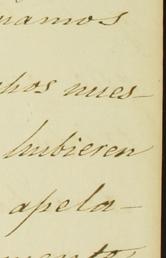 namos
chos nues-
hubieren
apela-
mento